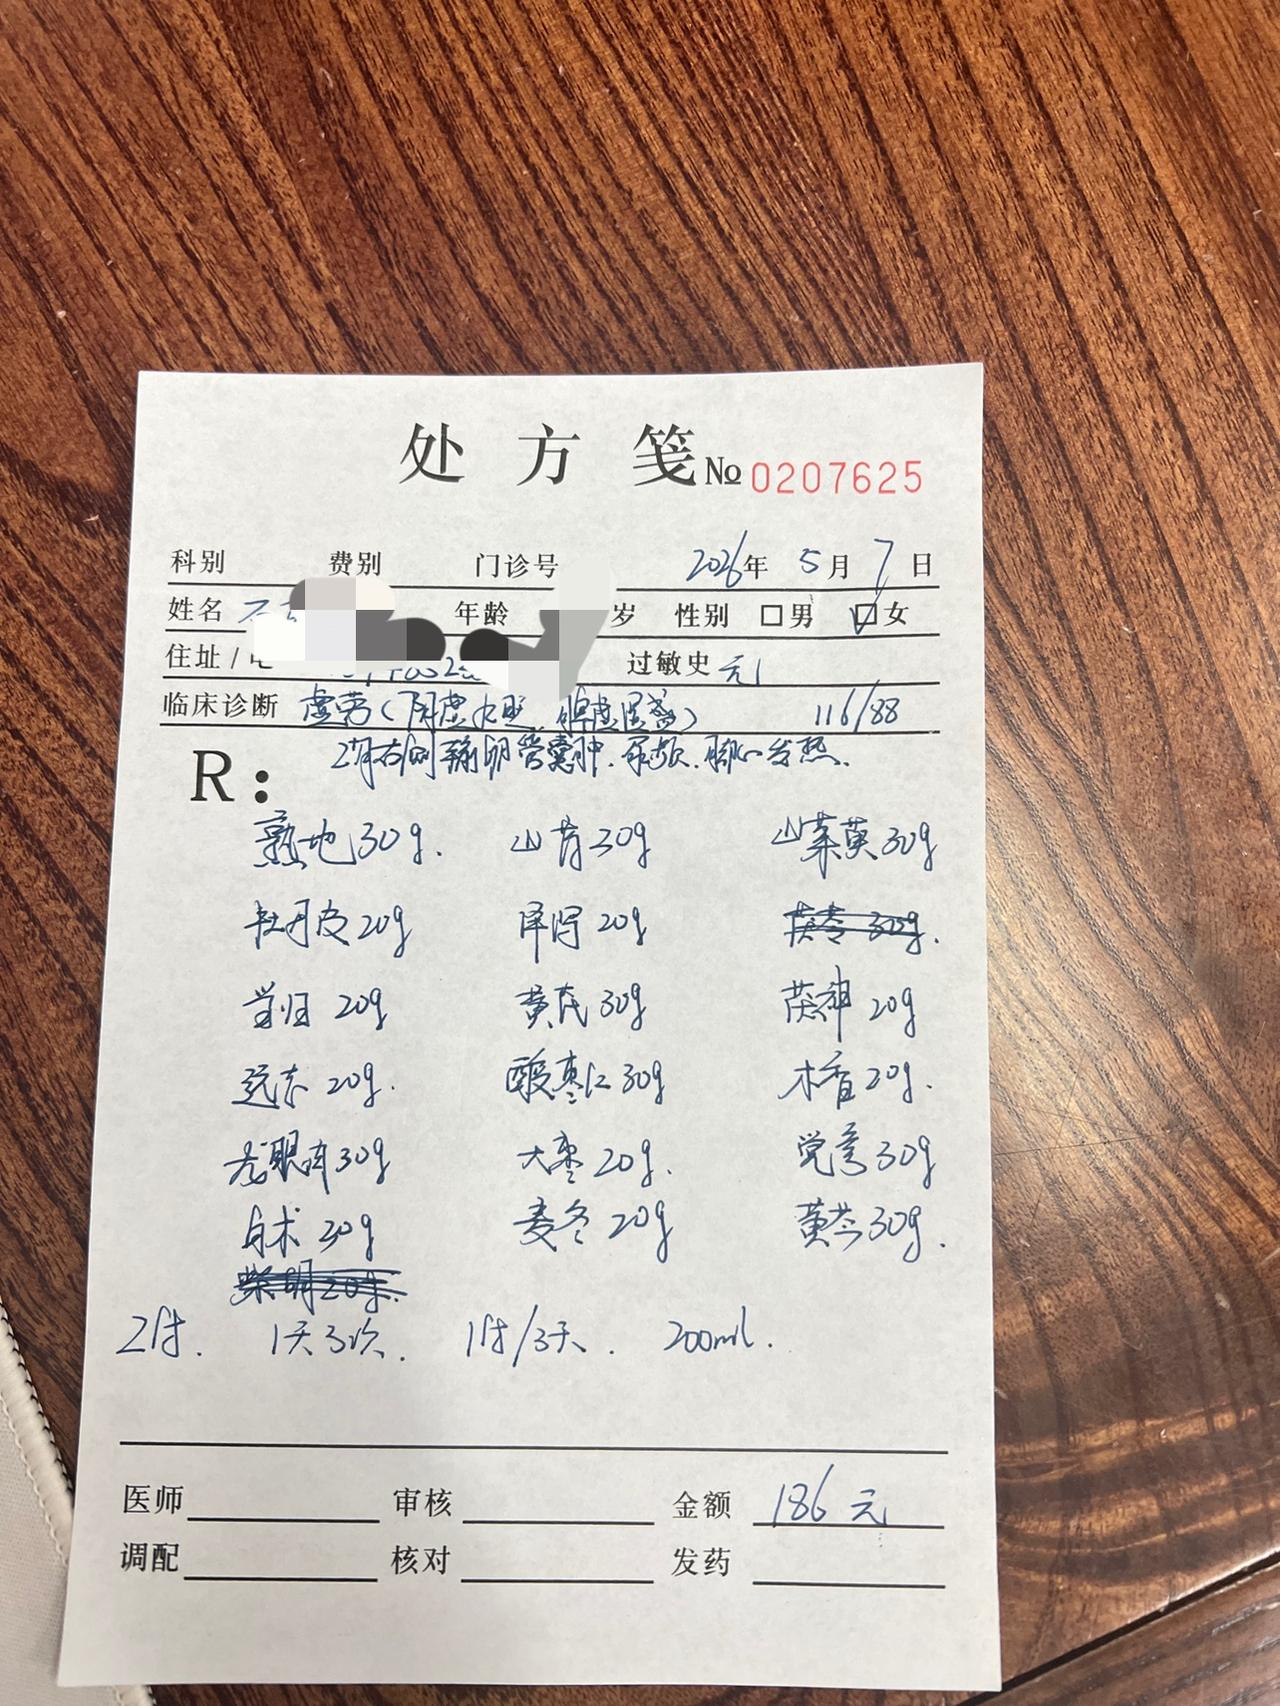 处方笺 № 0207625
科别 费别 门诊号 2026年 5月 7日
姓名 年龄 岁 性别 □男 ☑女
住址/电 过敏史 无
临床诊断 虚劳(阴虚火旺、脾虚湿盛) 116/88
R: 2月右侧输卵管囊肿.尿频.脚心发热.
熟地30g. 山药30g 山茱萸30g
牡丹皮20g 泽泻20g 茯苓30g.
当归20g 黄芪30g 茯神20g
远志20g. 酸枣仁30g 木香20g.
龙眼肉30g 大枣20g. 党参30g
白术30g 麦冬20g 黄芩30g.
柴胡20g.
2付. 1天3次. 1付/3天. 200ml.
医师 审核 金额 186元
调配 核对 发药